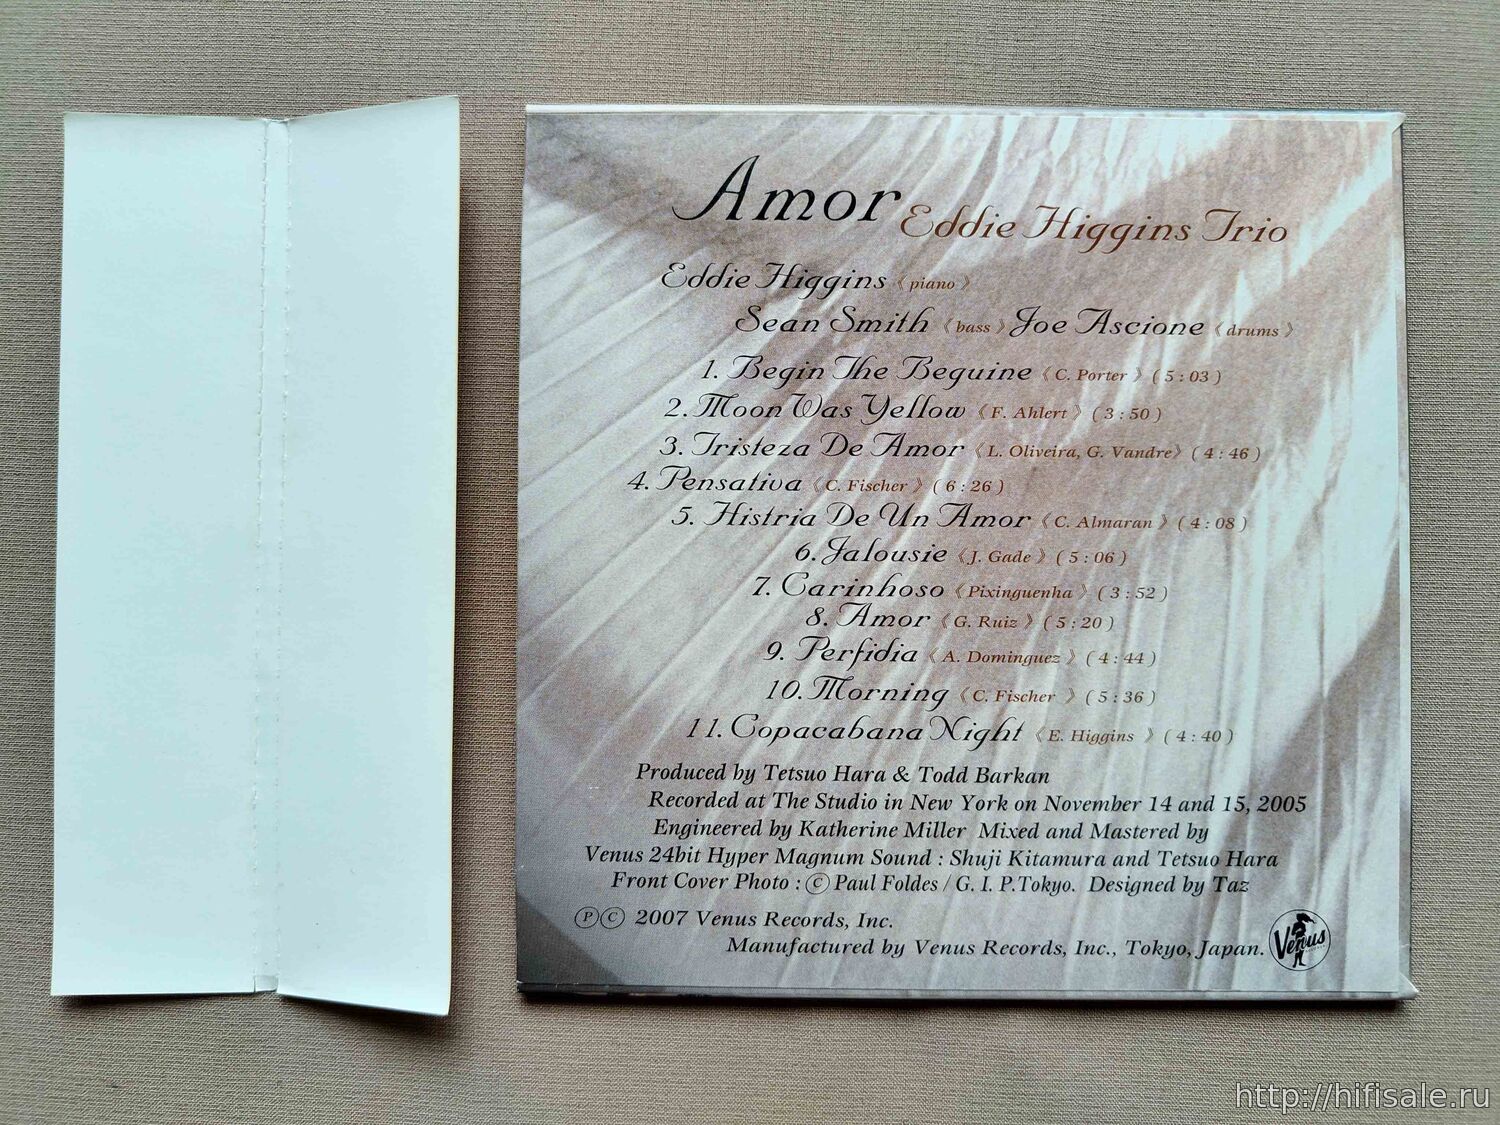 Amor Eddie Higgins Trio
Eddie Higgins 《 piano 》
Sean Smith 《 bass 》 Joe Ascione 《 drums 》
1. Begin The Beguine 《 C. Porter 》 ( 5 : 03 )
2. Moon Was Yellow 《 F. Ahlert 》 ( 3 : 50 )
3. Tristeza De Amor 《 L. Oliveira, G. Vandre》 ( 4 : 46 )
4. Pensativa 《 C. Fischer 》 ( 6 : 26 )
5. Histria De Un Amor 《 C. Almaran 》 ( 4 : 08 )
6. Jalousie 《 J. Gade 》 ( 5 : 06 )
7. Carinhoso 《 Pixinguenha 》 ( 3 : 52 )
8. Amor 《 G. Ruiz 》 ( 5 : 20 )
9. Perfidia 《 A. Dominguez 》 ( 4 : 44 )
10. Morning 《 C. Fischer 》 ( 5 : 36 )
11. Copacabana Night 《 E. Higgins 》 ( 4 : 40 )
Produced by Tetsuo Hara & Todd Barkan
Recorded at The Studio in New York on November 14 and 15, 2005
Engineered by Katherine Miller Mixed and Mastered by
Venus 24bit Hyper Magnum Sound : Shuji Kitamura and Tetsuo Hara
Front Cover Photo : © Paul Foldes / G. I. P.Tokyo. Designed by Taz
℗© 2007 Venus Records, Inc.
Manufactured by Venus Records, Inc., Tokyo, Japan.
Venus
http://hifisale.ru